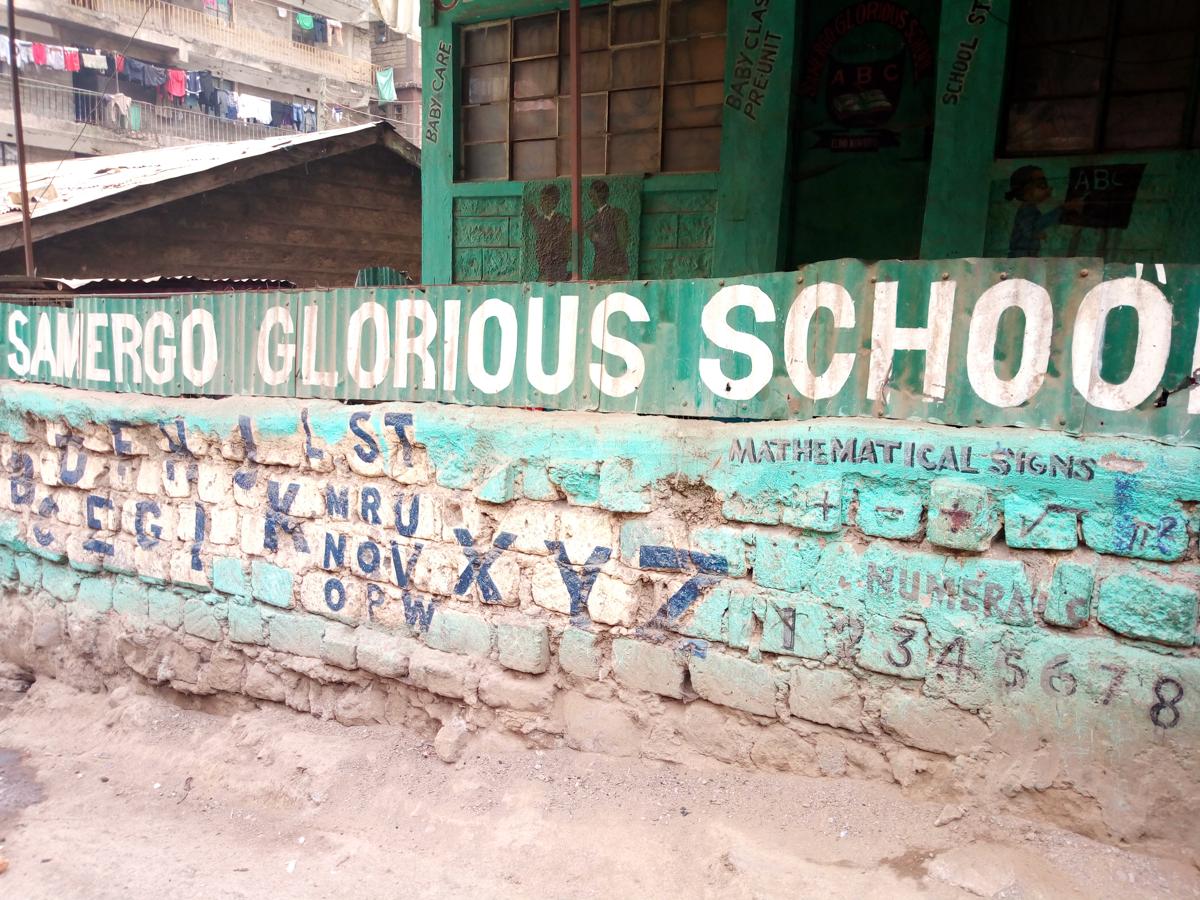 BABY CARE
BABY CLAS
PRE-UNIT
SAMERGO GLORIOUS SCHOOL
A B C
SCHOOL ST
ABC
SAMERGO GLORIOUS SCHOOL
L S T
K M R U
C E G I N Q V X Y Z
O P W
MATHEMATICAL SIGNS
+ - ÷ √
NUMERALS
1 2 3 4 5 6 7 8